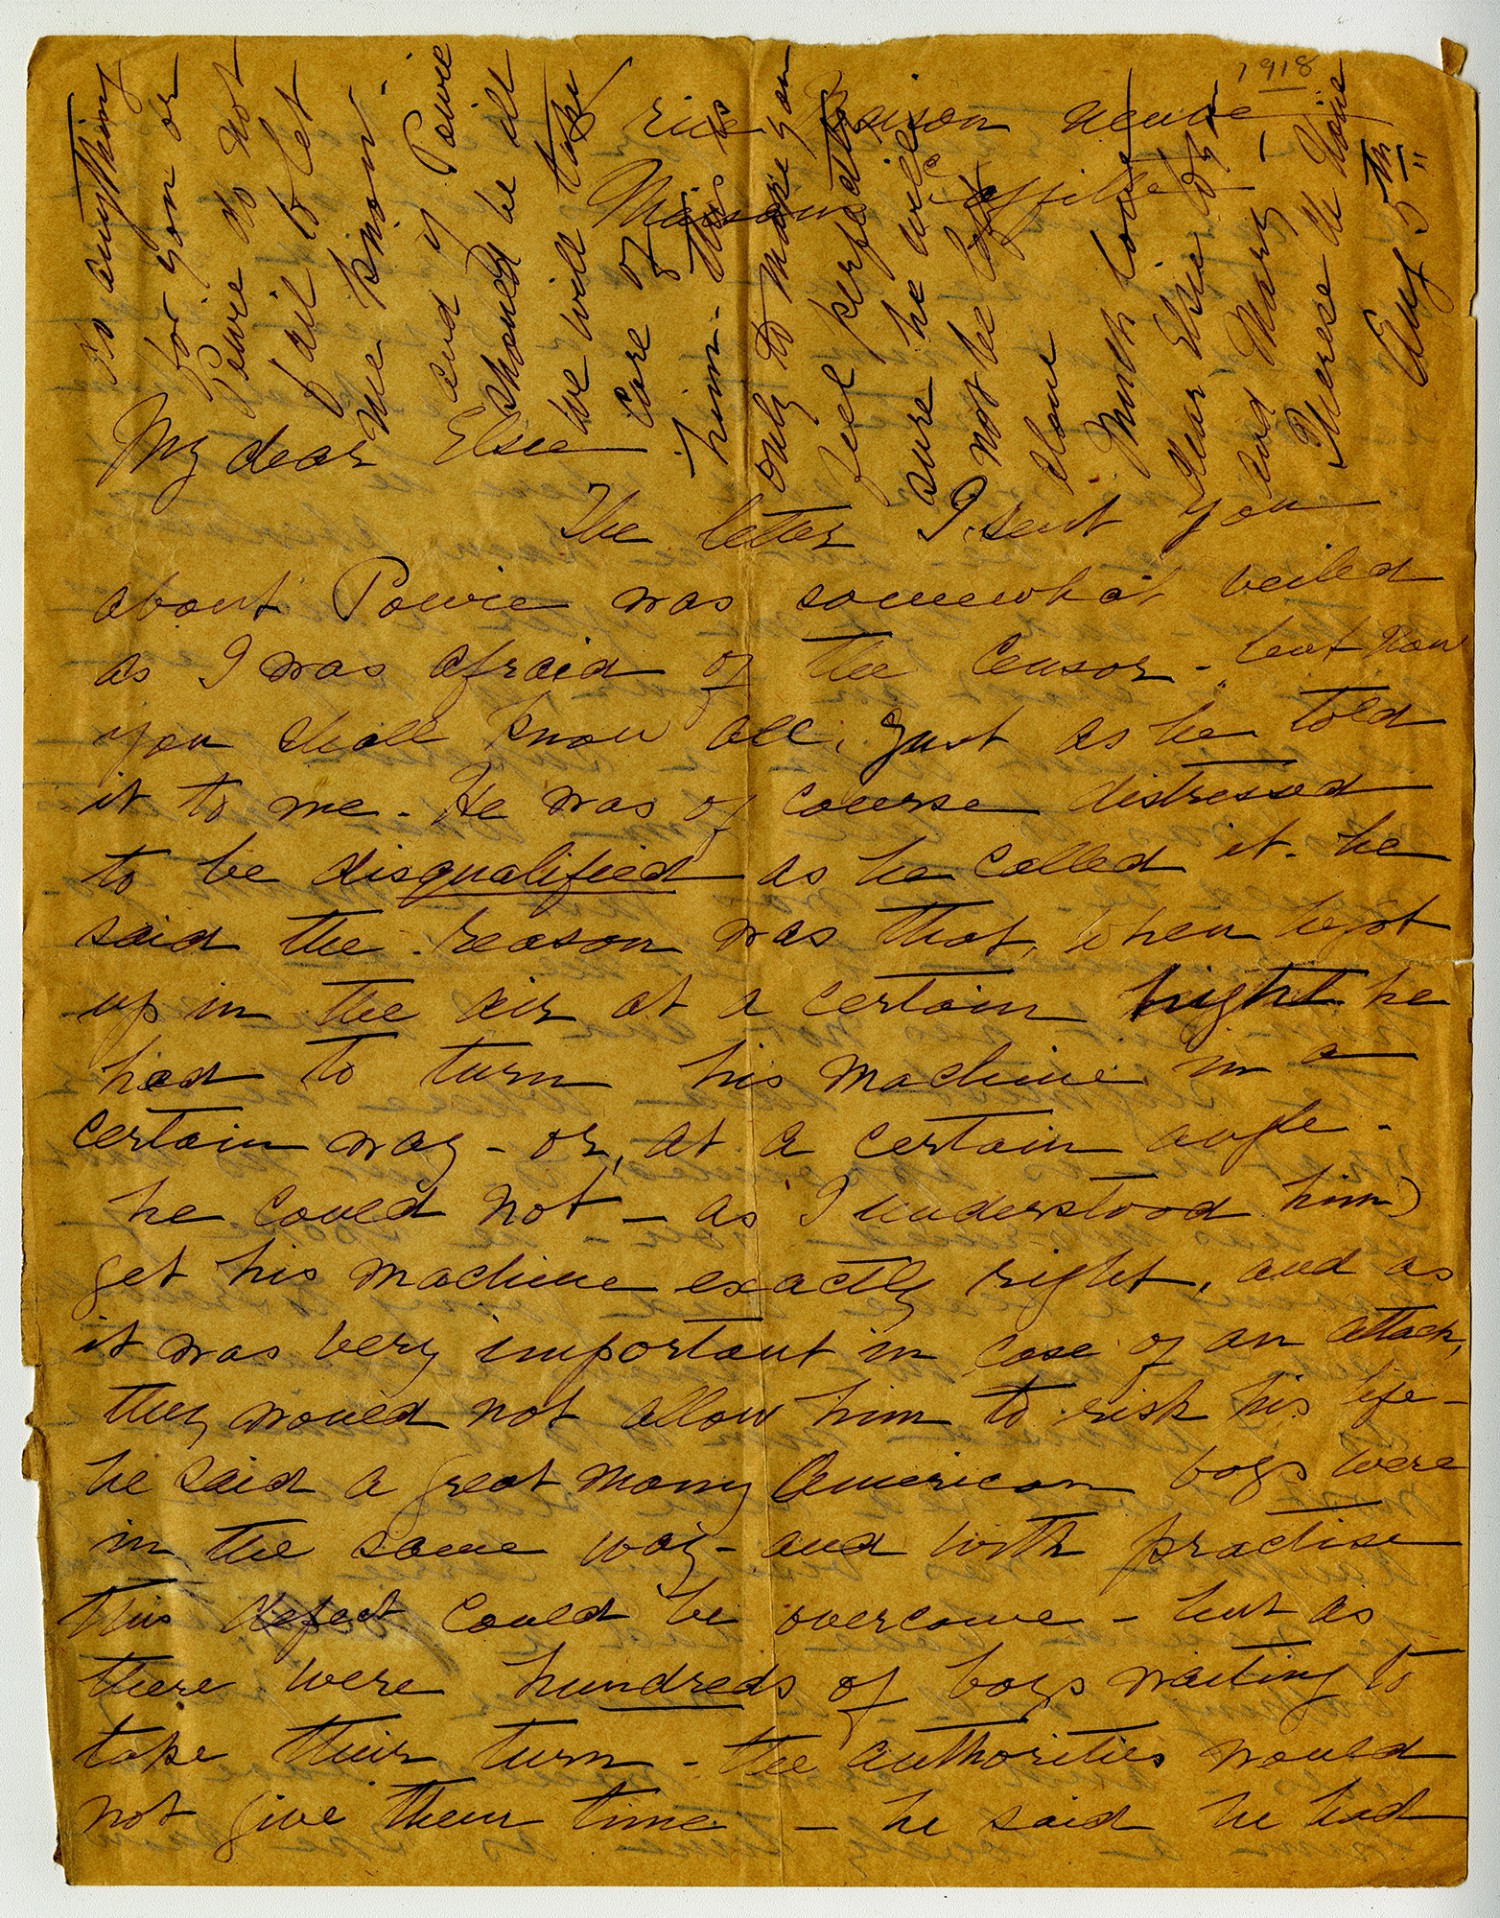 1918
rue Maison neuve
Maisons Laffitte
My dear Elsie
The letter I sent you
about Powie was somewhat veiled
as I was afraid of the Censor - but now
you shall know all, just as he told
it to me. He was of course distressed
to be disqualified as he called it. he
said the reason was that, when kept
up in the air at a certain hight he
had to turn his machine in a
certain way - or, at a certain angle -
he could not - as I understood him)
get his machine exactly right, and as
it was very important in case of an attack,
they would not allow him to risk his life -
he said a great many American boys were
in the same way - and with practise
this defect could be overcome - but as
there were hundreds of boys waiting to
take their turn - the authorities would
not give them time - he said he had
is anything
for you or
Powie do not
fail to let
me know.
and if Powie
should be ill
we will take
care of
him - this is
only to make you
feel perfectly
sure he will
not be left
alone
Much love
dear Elsie to you
and Mary -
Therese H
Aug 5th